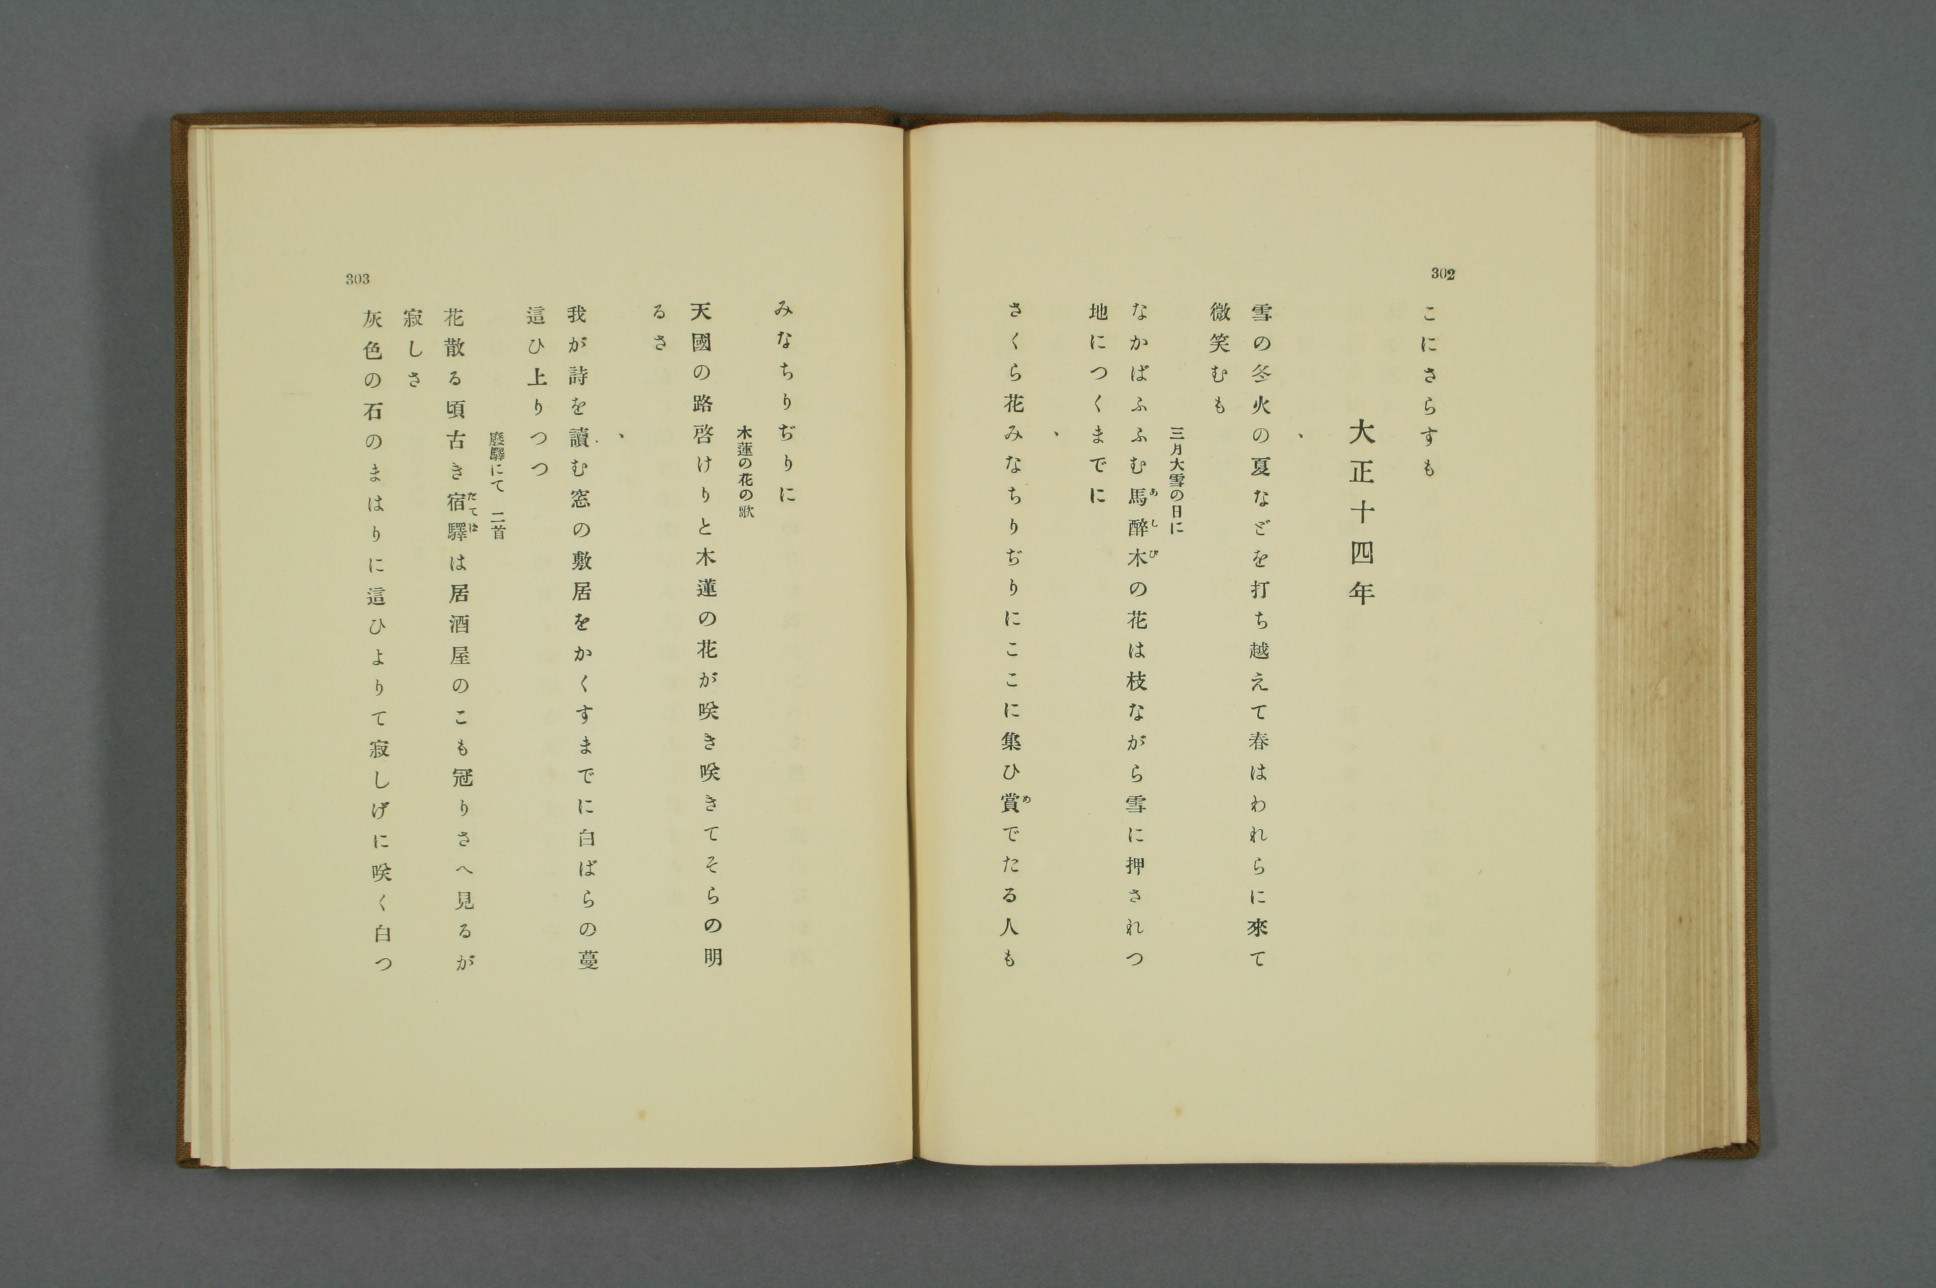 302
こにさらすも
大正十四年
、
雪の冬火の夏などを打ち越えて春はわれらに來て
微笑むも
三月大雪の日に
なかばふふむ馬醉木の花は枝ながら雪に押されつ
あしび
地につくまでに
、
さくら花みなちりぢりにここに集ひ賞でたる人も
め
みなちりぢりに
木蓮の花の歌
天國の路啓けりと木蓮の花が咲き咲きてそらの明
るさ
、
我が詩を讀む窓の敷居をかくすまでに白ばらの蔓
這ひ上りつつ
廢驛にて 二首
花散る頃古き宿驛は居酒屋のこも冠りさへ見るが
たてば
寂しさ
灰色の石のまはりに這ひよりて寂しげに咲く白つ
303